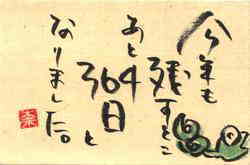 今年も
残すとこ
あと364日と
なりました。